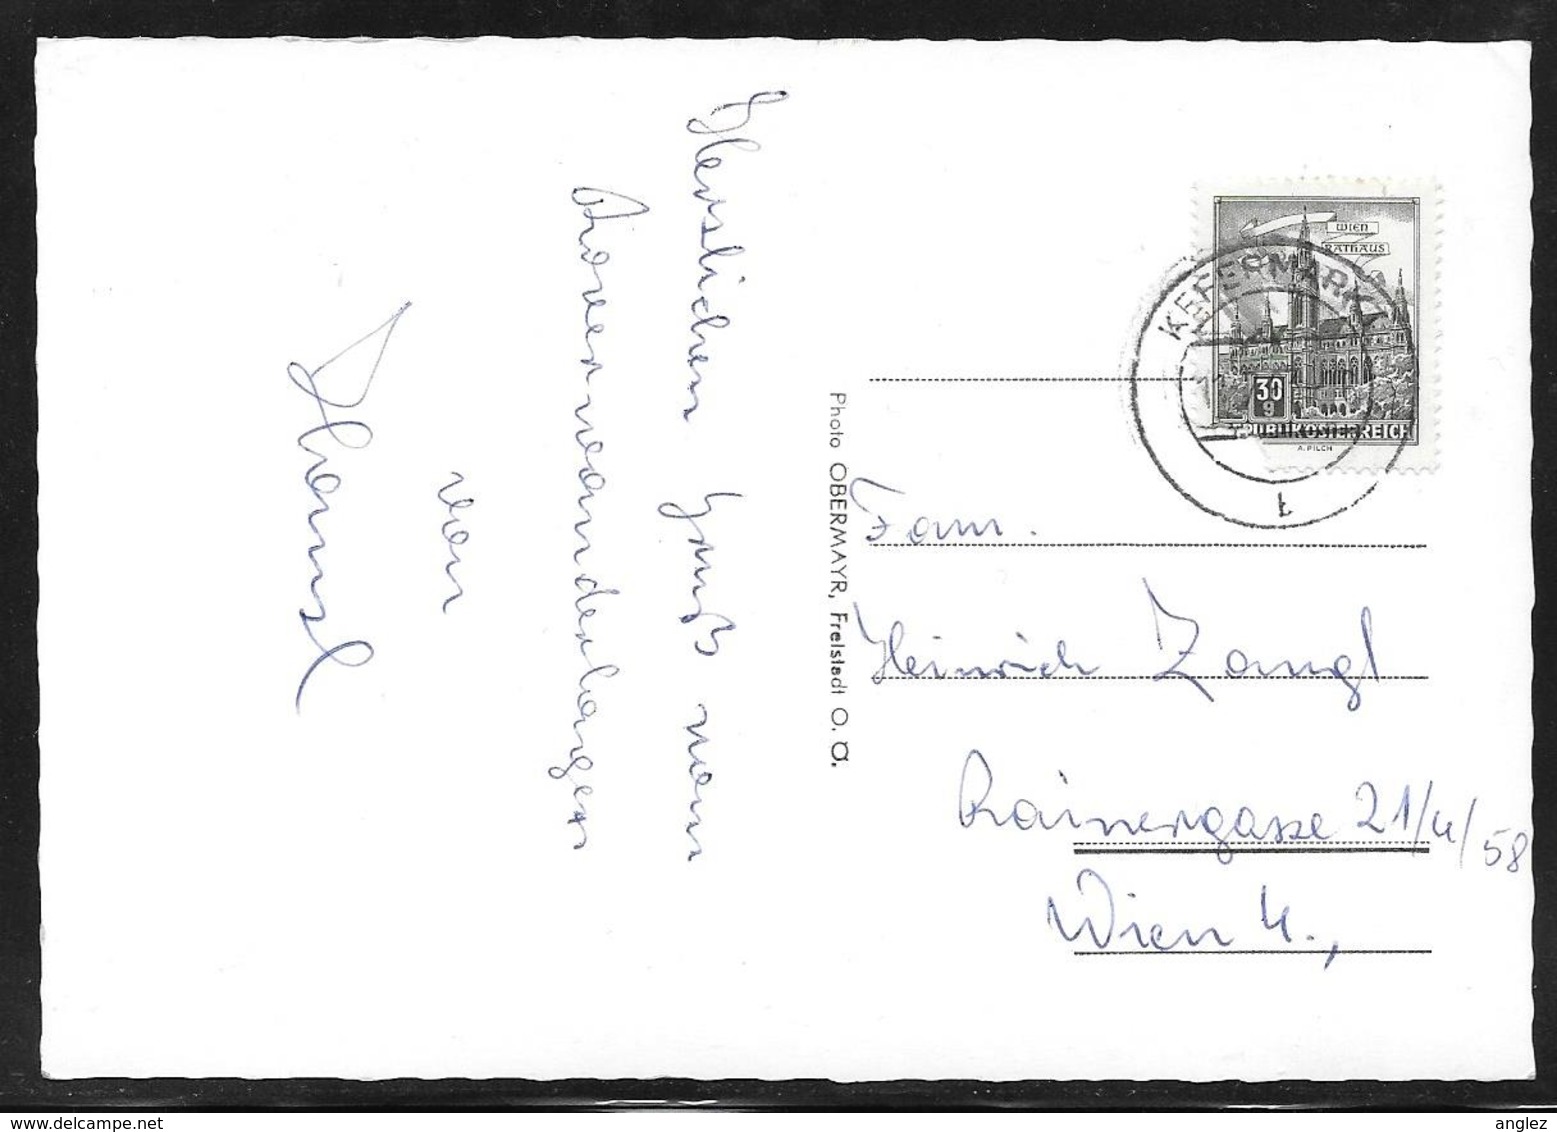 Herzlichen Gruß vom
von
Hansl
Photo OBERMAYR, Freistadt O. Ö.
WIEN
RATHAUS
KEFERMARKT
30
g
REPUBLIK ÖSTERREICH
A. PILCH
t
Fam.
Heinrich Zangl
Rainergasse 21/4/58
Wien 4.,
www.delcampe.net
anglez